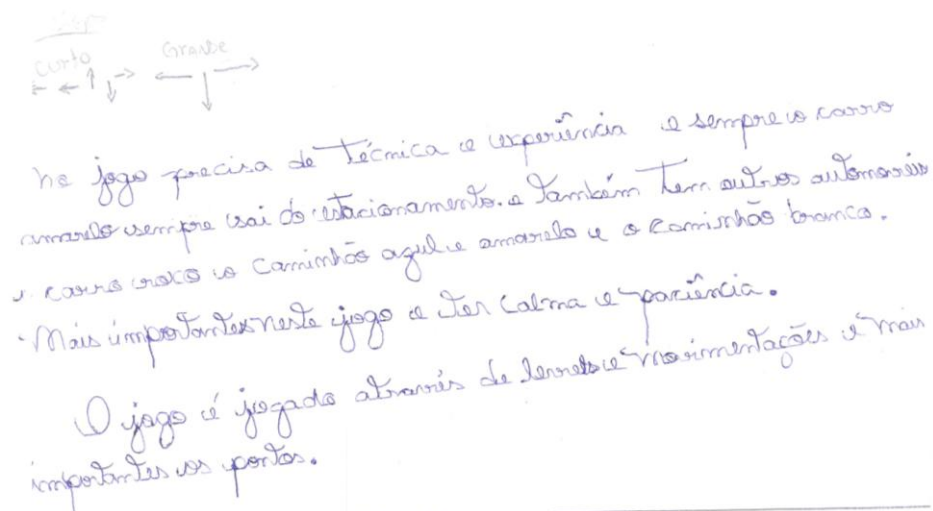 Curto Grande
no jogo precisa de Técnica e experiência e sempre o carro
amarelo sempre sai do estacionamento. e também Tem outros automovéis
o carro roxo o caminhão azul e amarelo e o caminhão branco.
Mais importantes neste jogo e Ter calma e paciência.
O jogo é jogado atravvés de e movimentações e mais
importantes os pontos.